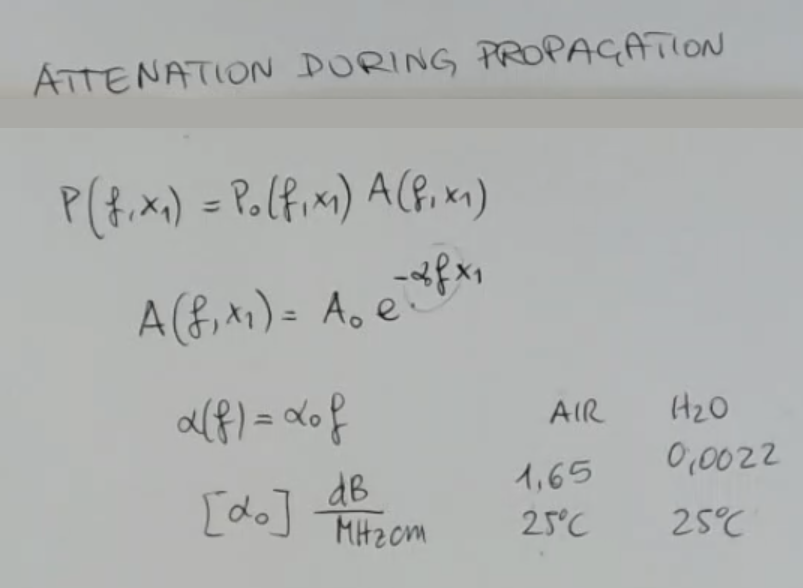 ATTENATION DURING PROPAGATION
P(f,x₁) = P₀(f,x₁) A(f,x₁)
A(f,x₁) = A₀ e^-αfx₁
α(f) = α₀f
AIR H2O
[α₀] dB/MHz cm
1,65 0,0022
25°C 25°C